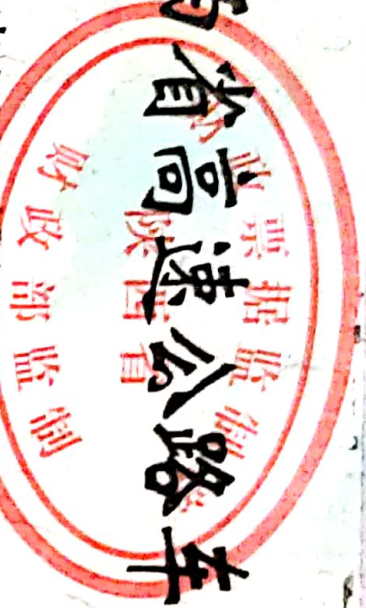 省高速公路车
政票据监制
陕西省
财政部监制